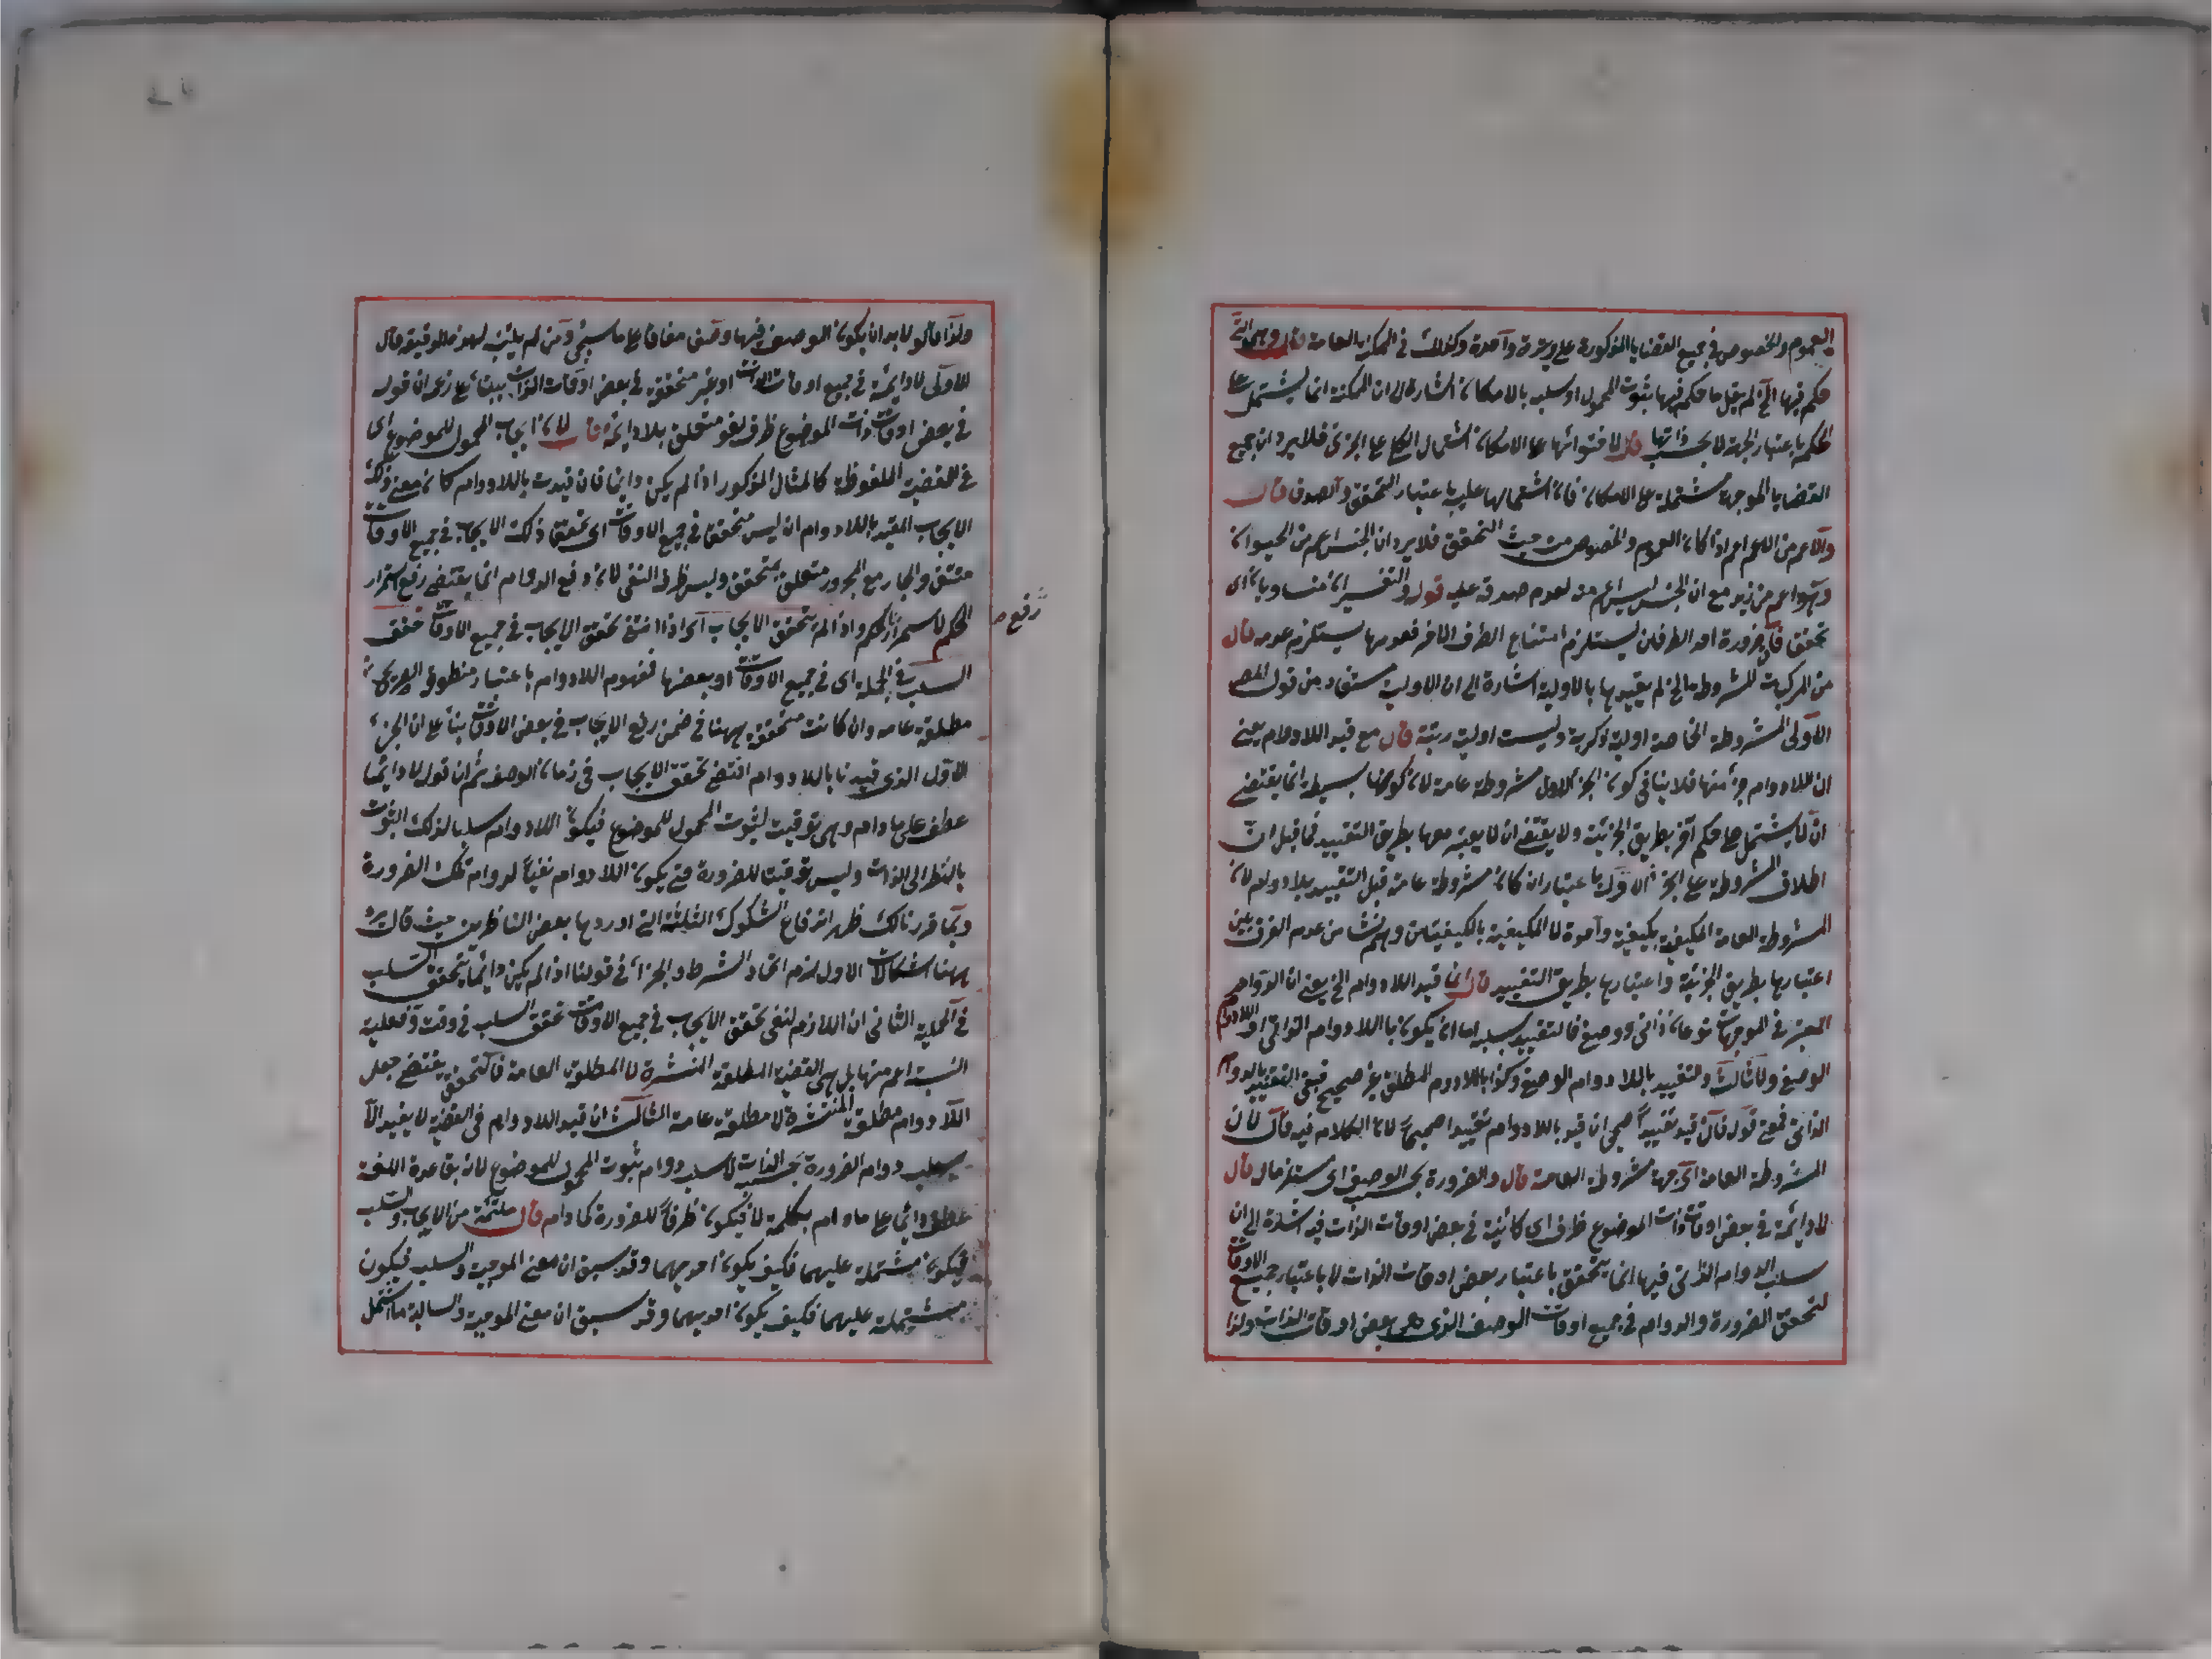 العموم والخصوص في جميع القضايا المذكورة على وتيرة واحدة وكذلك في الممكنة العامة قال وهي التي
حكم فيها الخ لم يقل ما حكم فيها بثبوت المحمول او سلبه بالامكان اشارة الى ان الممكنة انما يشتمل على
الحكم باعتبار الجهة لا بحسب ذاتها قال لاحتوائها على الامكان اشتمال الكل على الجزئ فلا يرد ان جميع
القضايا الموجهة مشتملة على الامكان فان اشتمالها عليه باعتبار التحقق والصدق قال
والاعم من الاعم اعم اذا كان العموم والخصوص من حيث التحقق فلا يرد ان الجنس اعم من الحيوان
وهو اعم من زيد مع ان الجنس ليس اعم منه لعدم صدقه عليه قوله والتفسيران متساويان اى
تحقق فان ضرورة احد الطرفين يستلزم امتناع الطرف الاخر فعدمها يستلزم عدمه قال
من المركبات المشروطة الخ لم يقيدها بالاولية اشارة الى ان الاولية مستفاد من قول المص
الاولى المشروطة الخاصة اولية ذكرية وليست اولية رتبة قال مع قيد اللادوام يعنى
ان اللادوام جزء منها فلا ينافي كون الجزء الاول مشروطة عامة لان كونها بسيطة انما يقتضي
ان لا يشتمل على حكم آخر بطريق الجزئية ولا يقتضي ان لا يعتبر معها بطريق التقييد فما قيل ان
اطلاق المشروطة على الجزء الاول باعتبار ان كان مشروطة عامة قبل التقييد بلا دوام لان
المشروطة العامة المكيفية بكيفية واحدة لا المكيفية بالكيفيتين وهم نشا من عدم الفرق بين
اعتبارها بطريق الجزئية واعتبارها بطريق التقييد قال انما قيد اللادوام الخ يعنى ان الدوام
المعتبر في الموجهات نوعان ذاتي ووصفي فالتقييد بسلبه اما ان يكون باللادوام الذاتي او اللادوام
الوصفي ولا ثالث والتقييد باللادوام الوصفي وكذا باللادوم المطلق غير صحيح فبقي التقييد باللادوام
الذاتي فمعنى قوله فان قيد تقييدا صحيحا ان قيد باللادوام تقييدا صحيحا لان الكلام فيه قال لان
المشروطة العامة اى جهة مشروطة العامة قال والضرورة بحسب الوصف اى مستلزم مال قال
لا دائمة في بعض اوقات ذات الموضوع ظرف اى كائنة في بعض اوقات الذات فيه اشارة الى ان
سلب الدوام الذاتي فيها انما يتحقق باعتبار بعض اوقات الذات لا باعتبار جميع الاوقات
لتحقق الضرورة والدوام في جميع اوقات الوصف الذى هى بعض اوقات الذات ولذا
ولذا قالوا لا بد ان يكون الوصف فيها وصفا مفارقا على ما سيجئ ومن لم يتنبه لهذه الدقيقة قال
الاولى لا دائمة في جميع اوقات الذات او غير متحققة في بعض اوقات الذات بناء على زعم ان قوله
في بعض اوقات ذات الموضوع ظرف لغو متعلق بلا دائمة قال لان ايجاب المحمول للموضوع اى
في القضية الملفوظة كالمثال المذكور اذا لم يكن دائما فان قيدت باللادوام كان معنى ذلك
الايجاب المقيد باللادوام ان ليس متحققا في جميع الاوقات اى تحقق ذلك الايجاب في جميع الاوقات
منتف والجار مع المجرور متعلق بمتحقق وليس ظرف النفي لان رفع الدوام انما يقتضي رفع استمرار
الحكم لا استمرار الحكم واذا لم يتحقق الايجاب اى اذا انتفى تحقق الايجاب في جميع الاوقات تحقق
رفع
السلب في الجملة اى في جميع الاوقات او بعضها فمفهوم اللادوام باعتبار منطوقه الصريح
مطلقة عامة وان كانت متحققة ههنا في ضمن رفع الايجاب في بعض الاوقات بناء على ان الجزء
الاول الذى قيدنا باللادوام اقتضى تحقق الايجاب في زمان الوصف ثم ان قوله لا دائما
عطف على مادام وهى توقيت لثبوت المحمول للموضوع فيكون اللادوام سلبا لذلك الثبوت
بالنظر الى الذات وليس توقيتا للضرورة حتى يكون اللادوام نفيا لدوام تلك الضرورة
وبما قررنا لك ظهر اندفاع الشكوك الثلثة التي اوردها بعض الناظرين حيث قال يرد
ههنا اشكالات الاول لزم اتحاد الشرط والجزاء في قولنا اذا لم يكن دائما يتحقق السلب
في الجملة الثانى ان اللازم لنفي تحقق الايجاب في جميع الاوقات تحقق السلب في وقت وفعلية
النسبة اعم منها بل هى القضية المطلقة المنتشرة لا المطلقة العامة فالتحقق يقتضي جعل
اللادوام مطلقة المنتشرة لا مطلقة عامة الثالث ان قيد اللادوام في القضية لا يفيد الا
سلب دوام الضرورة بحسب الذات لا سلب دوام ثبوت المحمول للموضوع لان بقاعدة اللغة
عطف دائما على مادام بكلمة لا فيكون ظرفا للضرورة كمادام قال ملتئمة من الايجاب والسلب
فيكون مشتملة عليهما فكيف يكون احديهما وقد سبق ان معنى الموجبة والسلب فيكون
مشتملة عليهما فكيف يكون احديهما وقد سبق ان معنى الموجبة والسالبة ما اشتمل